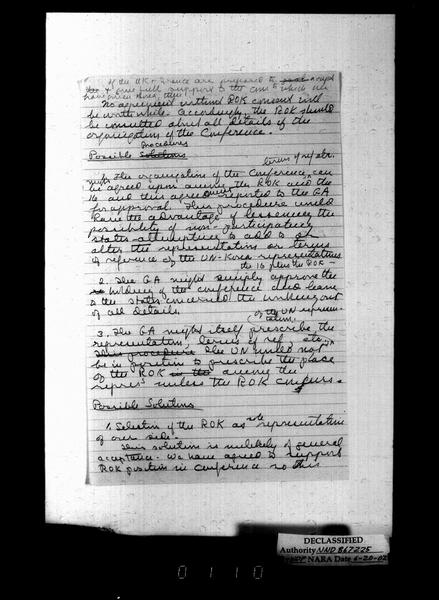 If the UK & France are prepared to accept
& give full support to the comts which we
have given Korea, then
No agreement without ROK consent will
be worthwhile. Accordingly, the ROK should
be consulted about all details of the
organization of the Conference.
Procedures
Possible Solutions
terms of ref etc.
1. The organization of the Conference, can
might
be agreed upon among the ROK and the
16 and this agreement reported to the GA
for approval. This procedure would
have the advantage of lessening the
possibility of non-participating
states attempting to add to or
alter the representation or terms
of reference of the UN-Korea representatives
the 16 plus the ROK -
2. The GA might simply approve the
holding of the conference and leave
to the states concerned the working out
of all details.
of the UN represen-
tation,
3. The GA might itself prescribe the
representation, terms of ref, etc.
This procedure The UN would not
be in position to prescribe the place
of the ROK in the among the
repres unless the ROK concurs.
Possible Solutions
1. Selection of the ROK as sole representative
of our side
This solution is unlikely of general
acceptance. We have agreed to support
ROK position in conference so this
DECLASSIFIED
Authority NND 867225
NARA Date 6-20-02
0 1 1 0